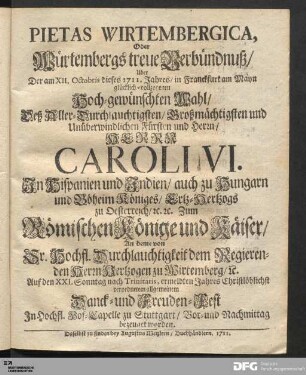 PIETAS WIRTEMBERGICA,
Oder
Würtembergs treue Verbündnuß/
Uber
Der am XII. Octobris dieses 1711. Jahres/ in Franckfurt am Mäyn
glücklich-vollzogenen
Hoch-gewünschten Wahl/
Deß Aller-Durchlauchtigsten/ Großmächtigsten und
Unüberwindlichen Fürsten und Herrn/
HERRN
CAROLI VI.
In Hispanien und Indien/ auch zu Hungarn
und Böheim Königes/ Ertz-Hertzogs
zu Oesterreich/ ꝛc. ꝛc. Zum
Römischen Könige und Käiser/
An dame von
Sr. Hochfl. Durchlauchtigkeit dem Regieren-
den Herrn Hertzogen zu Wirtemberg/ ꝛc.
Auf den XXI. Sonntag nach Trinitatis, ermeldten Jahres Christlöblichst
verordneten allgemeinen
Danck- und Freuden-Fest
In Hochfl. Hof-Capelle zu Stuttgart/ Vor- und Nachmittag
bezeuget worden.
Daselbst zu finden bey Augustus Metzlern/ Buchhändlern. 1711.
DFG